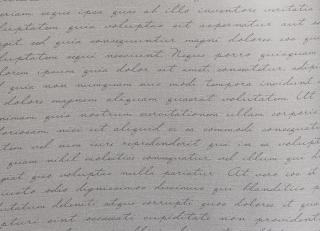 aperiam eaque ipsa quae ab illo inventore veritatis
voluptatem quia voluptas sit aspernatur aut
fugit sed quia consequuntur magni dolores eos qui
voluptatem sequi nesciunt. Neque porro quisquam
dolorem ipsum quia dolor sit amet, consectetur, adipisci
quia non numquam eius modi tempora incidunt
dolore magnam aliquam quaerat voluptatem. Ut
minima quis nostrum exercitationem ullam corporis
laboriosam, nisi ut aliquid ex ea commodi consequatur
autem vel eum iure reprehenderit qui in ea voluptate
quam nihil molestiae consequatur vel illum qui
fugiat quo voluptas nulla pariatur. At vero eos et
iusto odio dignissimos ducimus qui blanditiis
voluptatum deleniti atque corrupti quos dolores et quas
excepturi sint occaecati cupiditate non provident